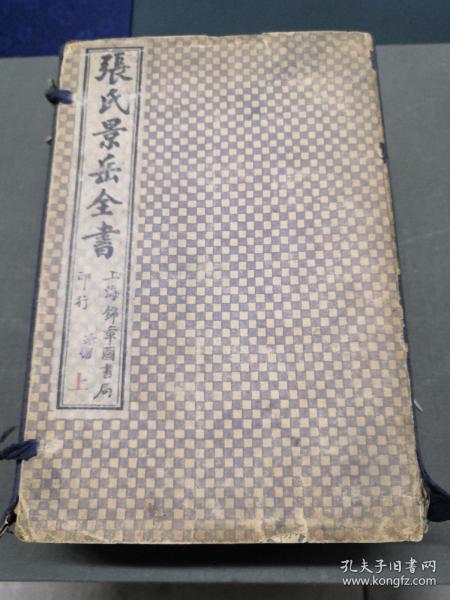 張氏景岳全書
上海錦章圖書局
印行
上
孔夫子旧书网
www.kongfz.com